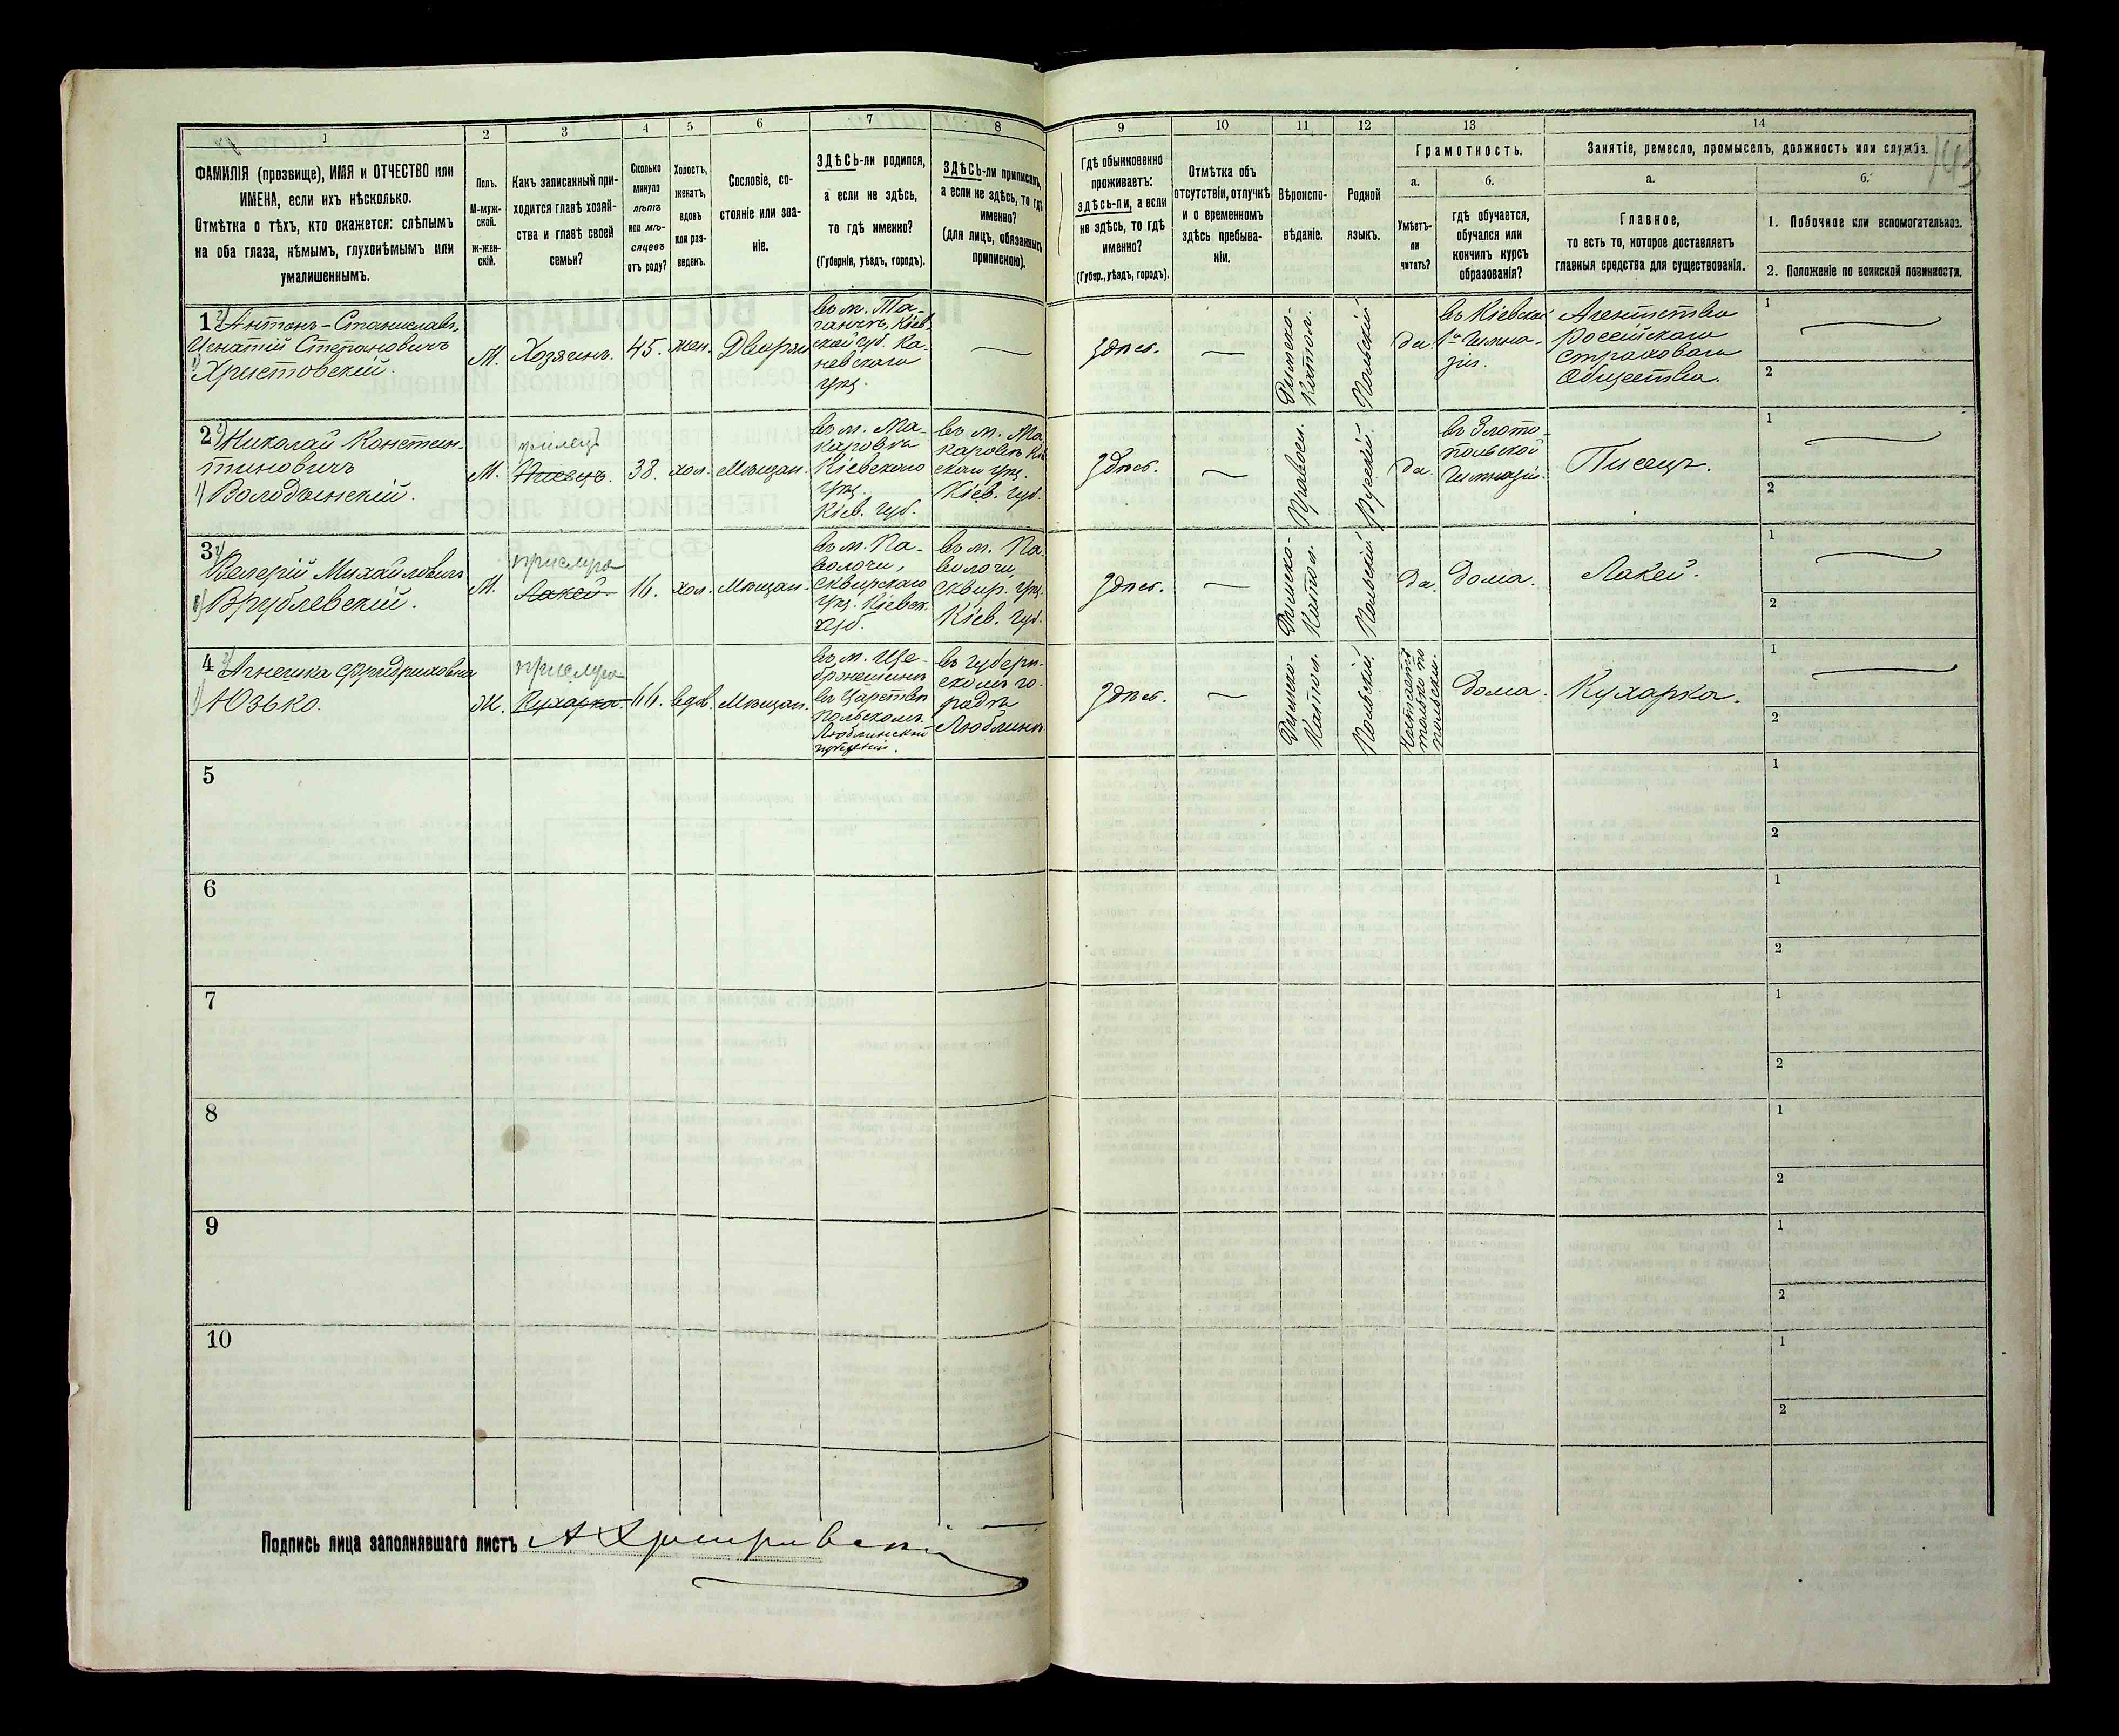 1
2
3
4
5
6
7
8
ФАМИЛІЯ (прозвище), ИМЯ и ОТЧЕСТВО или
ИМЕНА, если ихъ нѣсколько.
Отмѣтка о тѣхъ, кто окажется: слѣпымъ
на оба глаза, нѣмымъ, глухонѣмымъ или
умалишеннымъ.
Полъ.
М-муж-
ской.
ж-жен-
скій.
Какъ записанный при-
ходится главѣ хозяй-
ства и главѣ своей
семьи?
Сколько
минуло
лѣтъ
или мѣ-
сяцевъ
отъ роду?
Холостъ,
женатъ,
вдовъ
или раз-
веденъ.
Сословіе, со-
стояніе или зва-
ніе.
ЗДѢСЬ-ли родился,
а если не здѣсь,
то гдѣ именно?
(Губернія, уѣздъ, городъ).
ЗДѢСЬ-ли приписанъ,
а если не здѣсь, то гдѣ
именно?
(для лицъ, обязанныхъ
припискою).
9
10
11
12
13
14
Гдѣ обыкновенно
проживаетъ:
здѣсь-ли, а если
не здѣсь, то гдѣ
именно?
(Губер., уѣздъ, городъ).
Отмѣтка объ
отсутствіи, отлучкѣ
и о временномъ
здѣсь пребыва-
ніи.
Вѣроиспо-
вѣданіе.
Родной
языкъ.
Грамотность.
а.
б.
Умѣетъ-
ли
читать?
гдѣ обучается,
обучался или
кончилъ курсъ
образованія?
Занятіе, ремесло, промыселъ, должность или служба.
а.
б.
Главное,
то есть то, которое доставляетъ
главныя средства для существованія.
1. Побочное или вспомогательное.
2. Положеніе по воинской повинности.
1 2) Антонъ-Станиславъ,
Игнатій Степановичъ
1) Христовскій.
М.
Хозяинъ.
45.
жен.
Дворян
въ м. Та-
ганчѣ, Кіев-
ской губ. Ка-
невскаго
уѣз.
здѣсь.
Римско-
Катол.
Польскій
да
въ Кіевской
1й Гимна-
зіи.
Агентство
Россійскаго
Страховаго
Общества.
1
2
2 2) Николай Констан-
тиновичъ
1) Володынскій.
М.
Писецъ.
38.
хол.
Мѣщан.
въ м. Ма-
каровѣ
Кіевскаго
уѣз.
Кіев. губ.
въ м. Ма
каровѣ Кіев
скаго уѣз.
Кіев. губ.
здѣсь.
Правосл.
Русскій
да.
въ Злото-
польской
Гимназіи.
Писецъ.
1
2
3 2)
Валерій Михайловичъ
1) Врублевскій.
М.
прислуга
Лакей.
16.
хол.
Мѣщан.
въ м. Па-
волочи,
Сквирскаго
уѣз. Кіевск.
губ.
въ м. Па
волочи,
Сквир. уѣз.
Кіев. губ.
здѣсь.
Римско-
Катол.
Польскій
да.
Дома.
Лакей.
1
2
4 2) Агнешка Фридриховна
1) Юзько.
Ж.
прислуга
Кухарка.
66.
вдов.
Мѣщан.
въ м. Ще-
брженшинѣ
въ Царствѣ
Польскомъ
Люблинской
губерніи.
въ губерн-
скомъ го-
родѣ
Люблинѣ
здѣсь.
Римско-
Катол.
Польскій.
Читаетъ
только по
польски.
Дома.
Кухарка.
1
2
5
1
2
6
1
2
7
1
2
8
1
2
9
1
2
10
1
2
Подпись лица заполнявшаго листъ А Христовскій